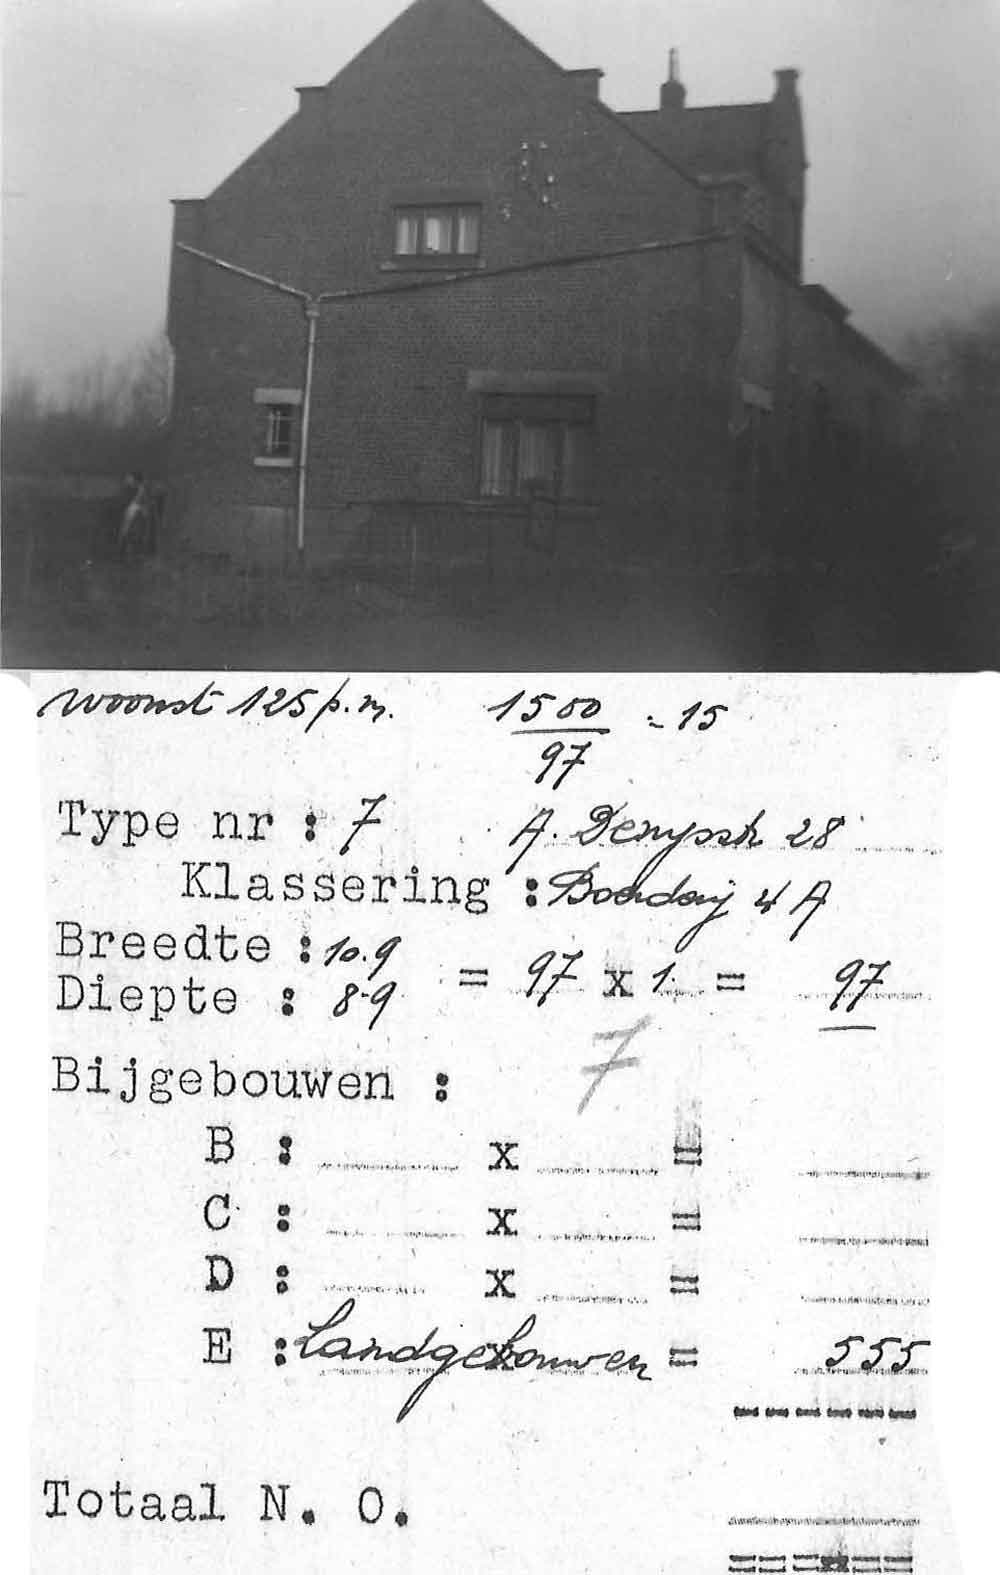 woonst 125 p.m. 1500 = 15
97
Type nr : 7 A. Denysstr 28
Klassering : Boerderij 4 A
Breedte : 10.9
Diepte : 8.9 = 97 x 1. = 97
Bijgebouwen : 7
B : x =
C : x =
D : x =
E : Landgebouwen x = 555
Totaal N. O.